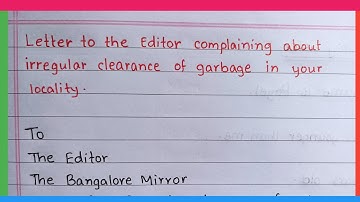 Letter to the Editor complaining about
irregular clearance of garbage in your
locality.
To
The Editor
The Bangalore Mirror